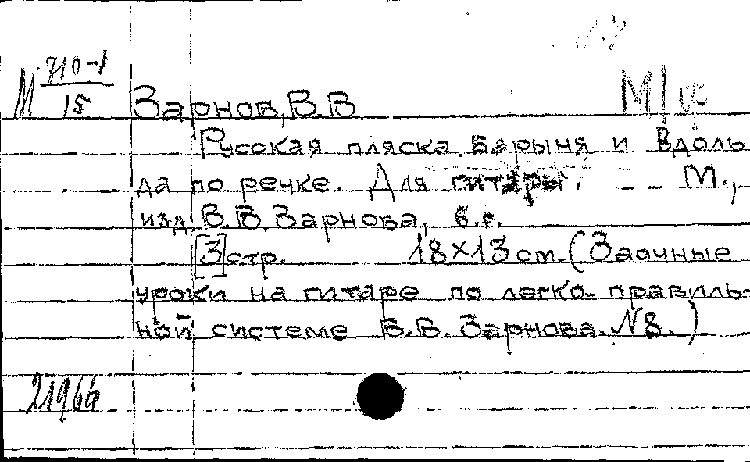 М 710-1
15
Зарнов, В.В
Русская пляска Барыня и Вдоль
да по речке. Для гитары. М.,
изд. В.В. Зарнова, б.г.
[3] стр. 18×13 cm. (Заочные
уроки на гитаре по легко-правиль-
ной системе В.В. Зарнова. №8.)
21966